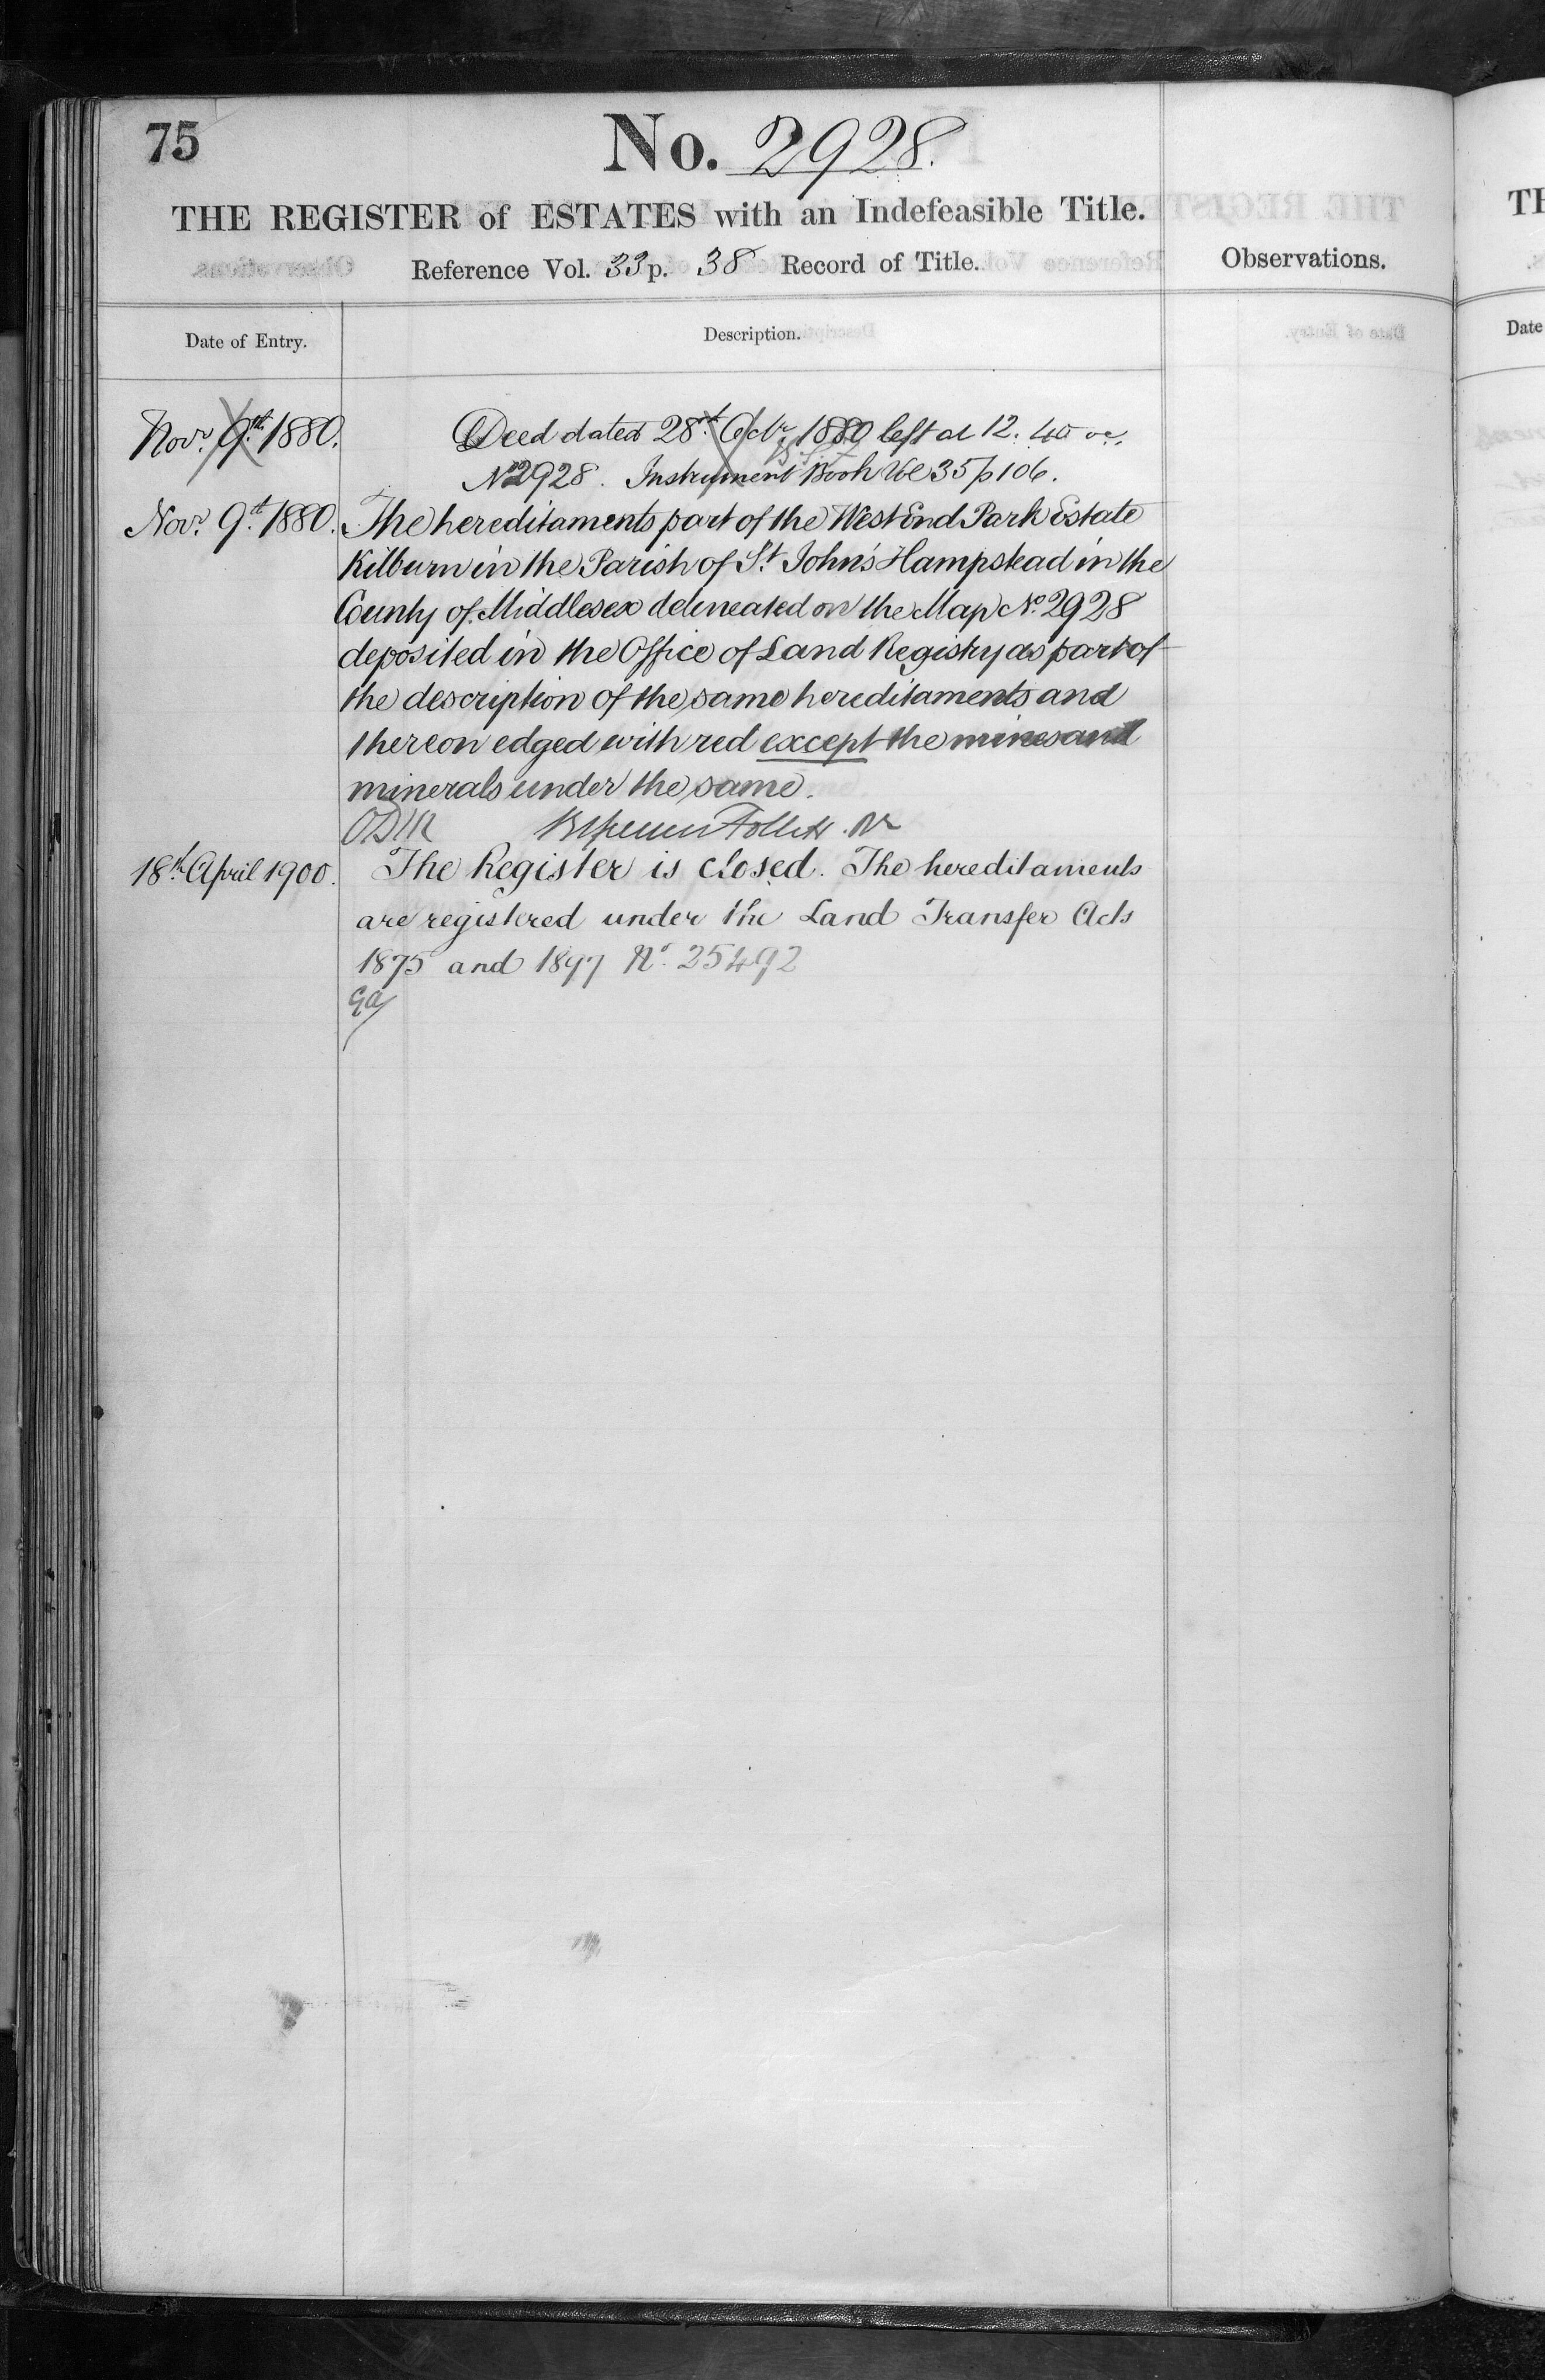 75
No. 2928.
THE REGISTER of ESTATES with an Indefeasible Title.
Reference Vol. 33 p. 38 Record of Title.
Observations.
Date of Entry.
Description.
Novr. 9th. 1880.
Deed dated 28t. Octr. 1880 left at 12. 40
No 2928. Instrument Book Vol 35 p 106.
Novr. 9t. 1880.
The hereditaments part of the West End Park Estate
Kilburn in the Parish of St. John's Hampstead in the
County of Middlesex delineated on the Map No. 2928
deposited in the Office of Land Registry as part of
the description of the same hereditaments and
thereon edged with red except the mines and
minerals under the same.
Follett
18th April 1900.
The Register is closed. The hereditaments
are registered under the Land Transfer Acts
1875 and 1897 No. 25492
TH
Date